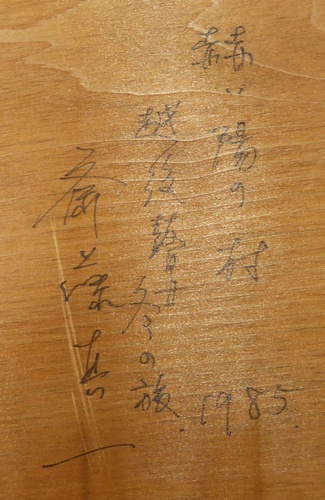 赫い陽の村
1985.
越後瞽女冬の旅
斎藤真一